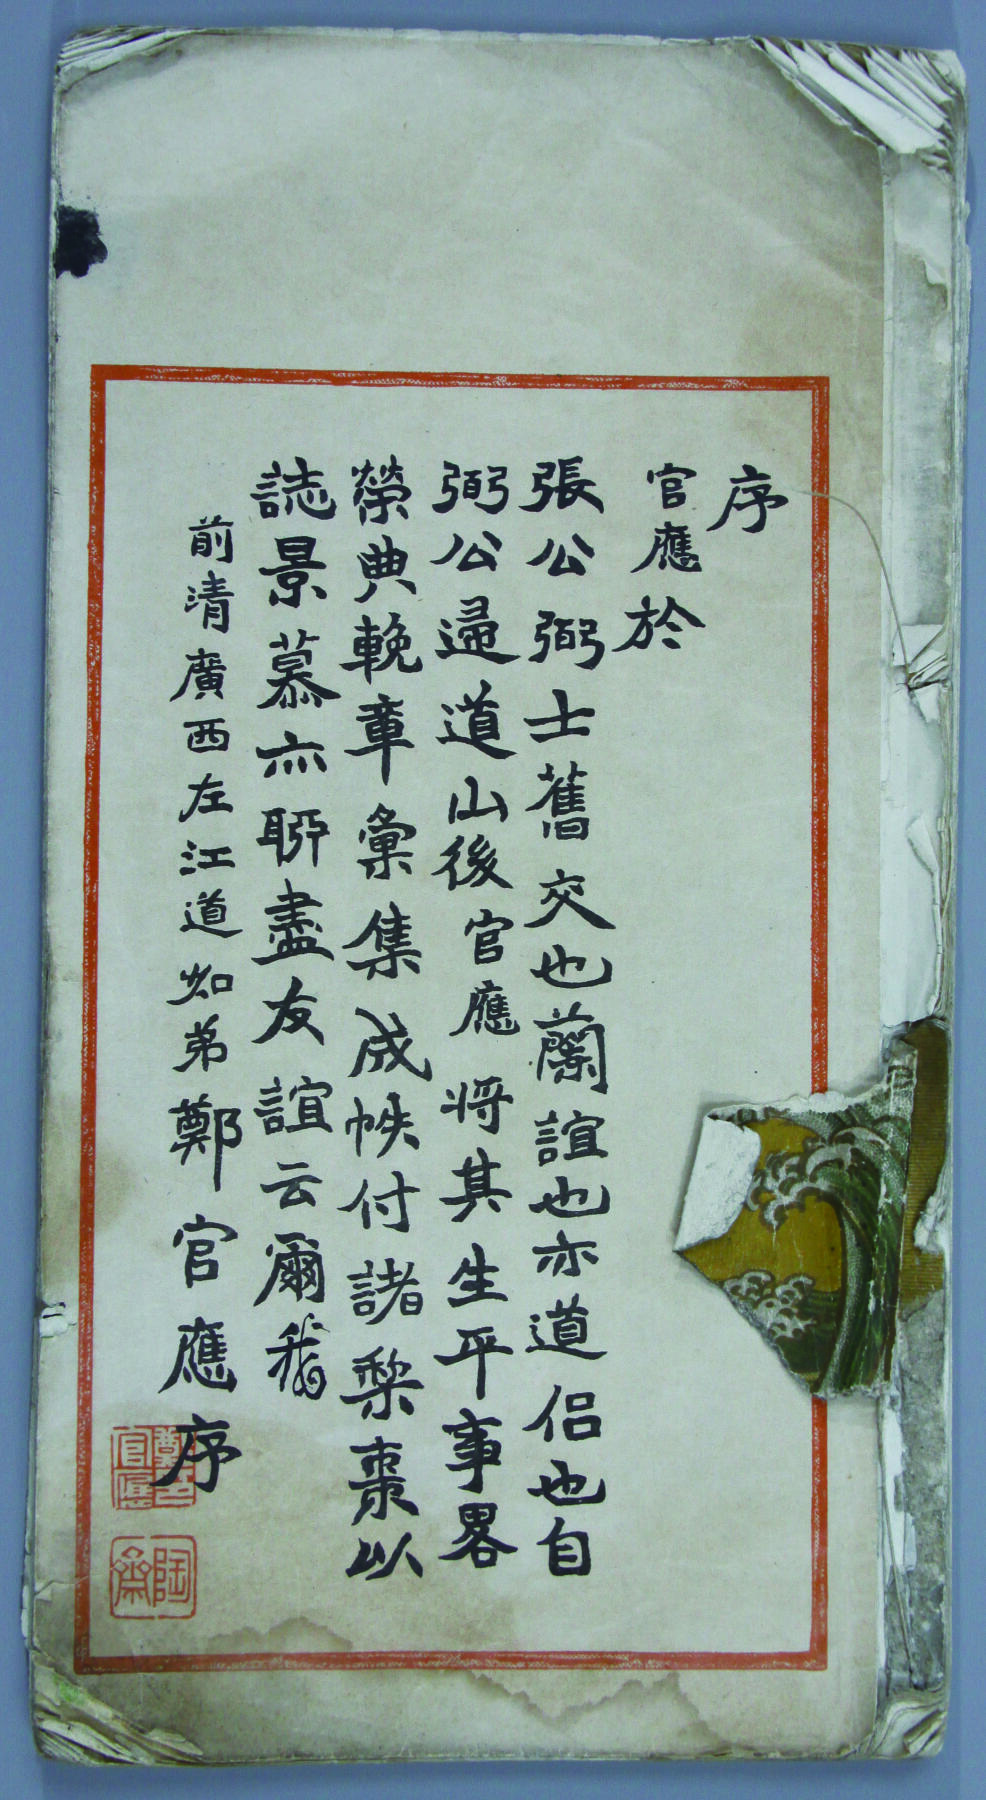 序
官應於
張公弼士舊交也蘭誼也亦道侶也自
弼公歸道山後官應將其生平事畧
榮典輓章彙集成帙付諸梨棗以
誌景慕亦聊盡友誼云爾
前清廣西左江道如弟鄭官應序
鄭印官應
陶齋